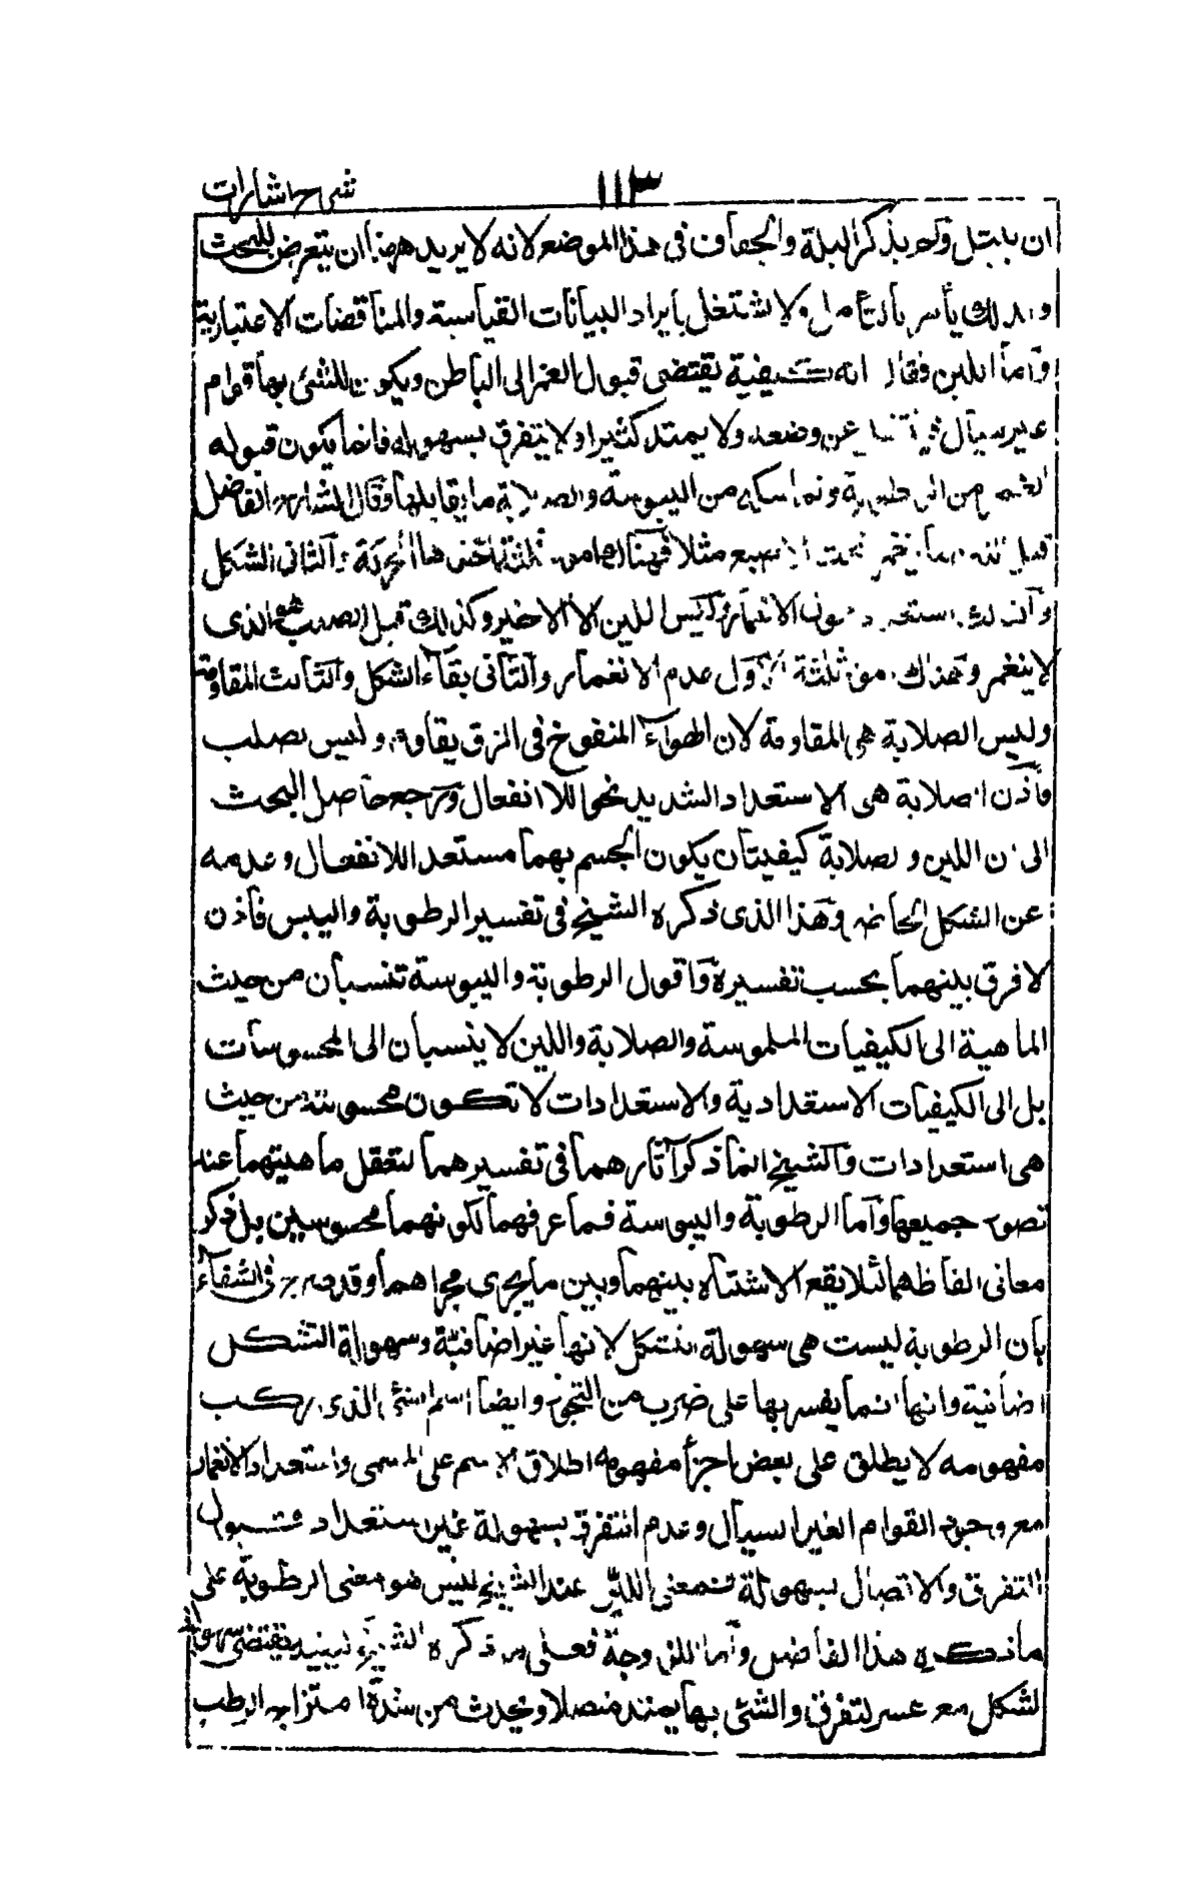 شرح اشارات ١١٣
ان يابتل ولم يذكر البلة والجفاف فى هذا الموضع لانه لا يريد ههنا ان يتعرض للبحث
ولذلك يأمر بالتأمل ولا يشتغل بايراد البيانات القياسية والمناقضات الاعتبارية
واما اللين فقال انه كيفية يقتضى قبول الغمز الى الباطن ويكون للشئ بها قوام
غير سيال عن وضعه ولا يمتد كثيرا ولا يتفرق بسهولة فانما يكون قبوله
الغمز من الرطوبة وتماسكه من اليبوسة والصلابة ما يقابلها وقال الشارح الفاضل
قيل مثلا فهناك امور ثلثة احدها الحركة والثانى الشكل
والثالث استعداد قبول الانغمار وليس اللين الا الاخير وكذلك قيل الصلب هو الذى
لا ينغمر وهناك امور ثلثة الاول عدم الانغمار والثانى بقاء الشكل والثالث المقاومة
وليس الصلابة هى المقاومة لان الهواء المنفوخ فى الزق يقاوم وليس بصلب
فاذن الصلابة هى الاستعداد الشديد نحو اللا انفعال ويرجع حاصل البحث
الى ان اللين والصلابة كيفيتان يكون الجسم بهما مستعد اللانفعال وعدمه
عن الشكل الحاضر وهذا الذى ذكره الشيخ فى تفسير الرطوبة واليبس فاذن
لا فرق بينهما بحسب تفسيره واقول الرطوبة واليبوسة تنسبان من حيث
الماهية الى الكيفيات الملموسة والصلابة واللين لا ينسبان الى المحسوسات
بل الى الكيفيات الاستعدادية والاستعدادات لا تكون محسوسة من حيث
هى استعدادات والشيخ انما ذكر آثارهما فى تفسيرهما لتعقل ماهيتهما عند
تصور جميعها واما الرطوبة واليبوسة فما عرفهما لكونهما محسوسين بل ذكر
معانى الفاظهما لئلا يقع الاشتباه بينهما وبين ما يجرى مجراهما وقد صرح فى الشفاء
بان الرطوبة ليست هى سهولة التشكل لانها غير اضافية وسهولة التشكل
اضافية وانها انما يفسر بها على ضرب من التجوز وايضا اسم الشئ الذى يركب
مفهومه لا يطلق على بعض اجزاء مفهومه اطلاق الاسم على المسمى واستعداد الانغمار
مع وجود القوام الغير السيال وعدم التفرق بسهولة غير استعداد قبول
التفرق والاتصال بسهولة فمعنى اللين عند الشيخ ليس هو معنى الرطوبة على
ما ذكره هذا الفاضل واما اللزوجة فعلى ما ذكره الشيخ كيفية يقتضى سهولة
لشكل مع عسر لتفرق والشئ بها يمتد متصلا ويحدث من شدة امتزاج الرطب